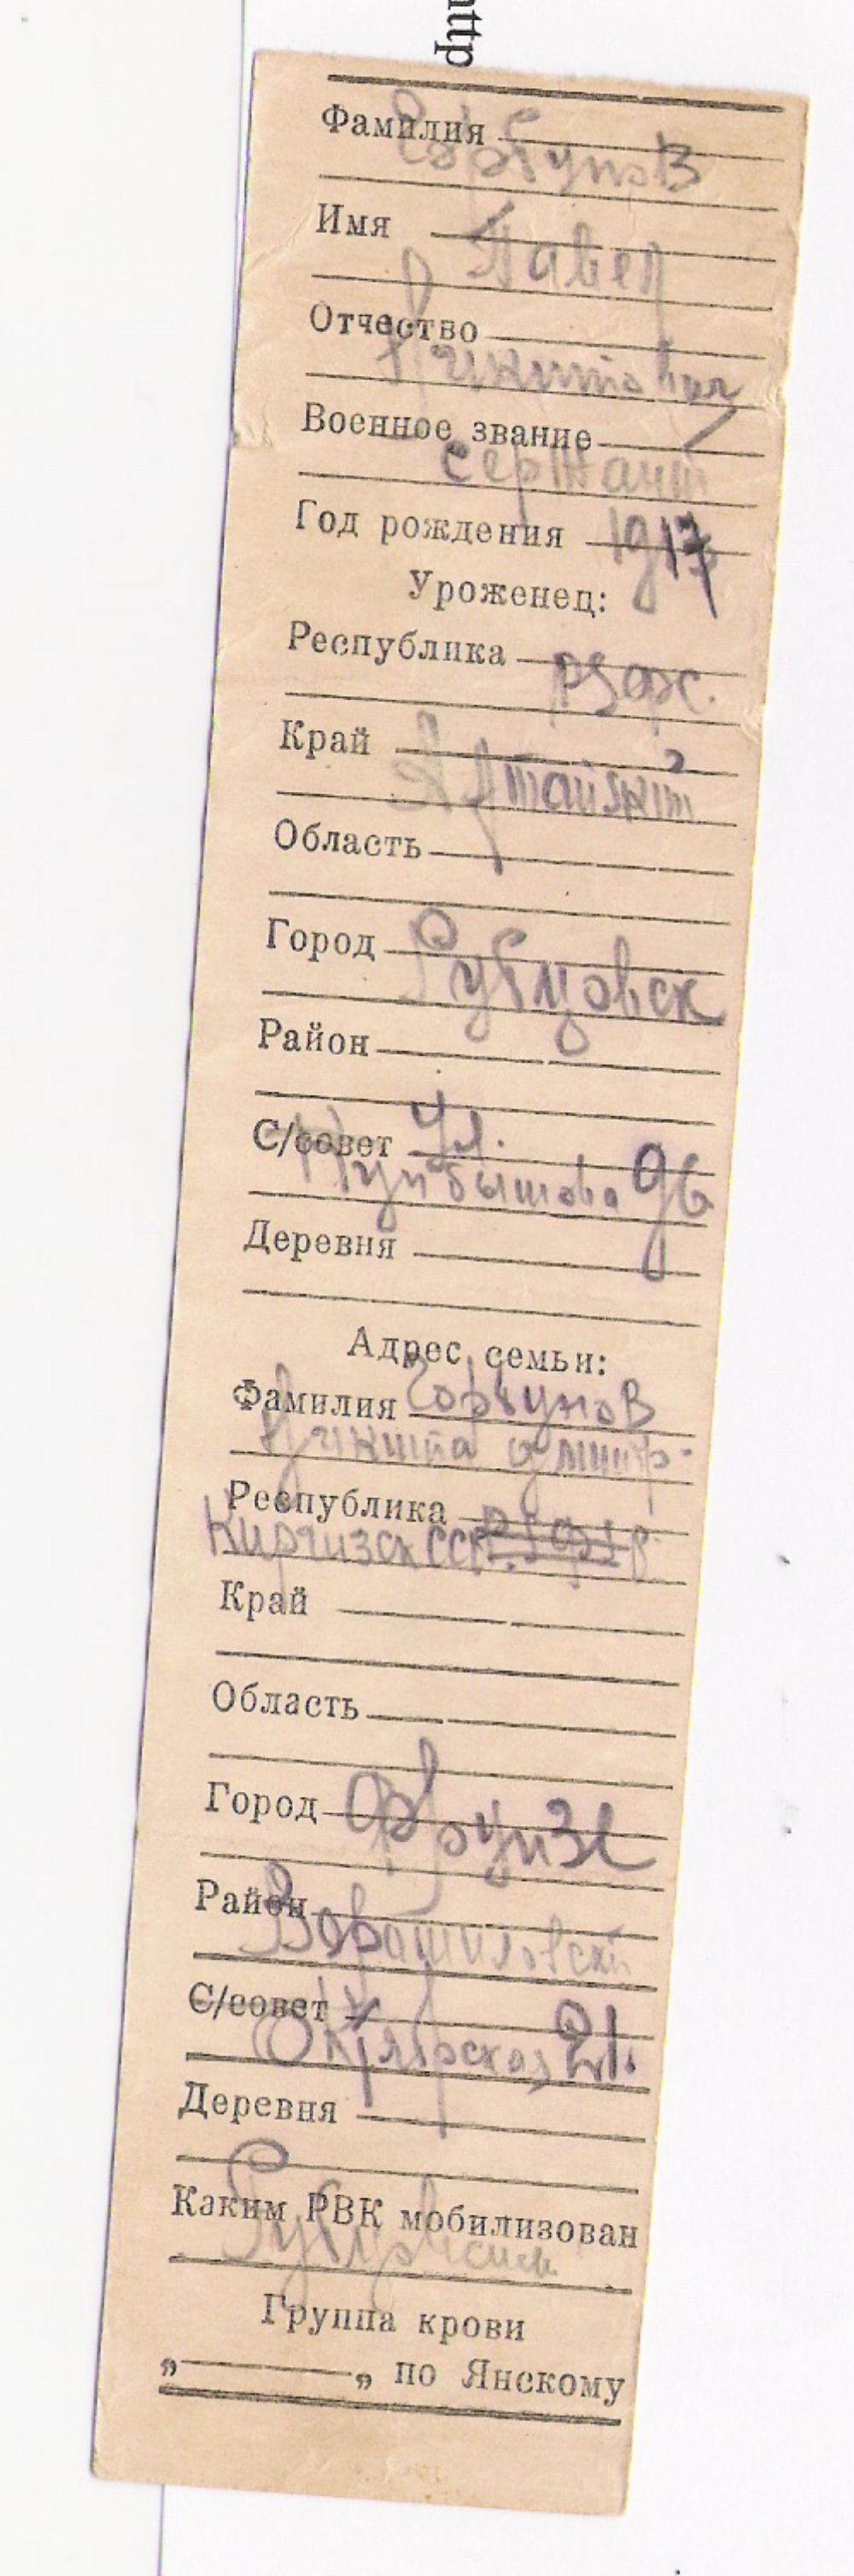 http
Фамилия
Горбунов
Имя
Павел
Отчество
Никитович
Военное звание
сержант
Год рождения 1917
Уроженец:
Республика
РСФС.
Край
Алтайский
Область
Город
Рубцовск
Район
С/совет Ул.
Куйбышева 96
Деревня
Адрес семьи:
Фамилия Горбунов
Никита Дмитр.
Республика
Киргизск ССР.
Край
Область
Город Фрунзе
Район
Ворошиловский
С/совет
Октябрская 21.
Деревня
Каким РВК мобилизован
Рубцовским
Группа крови
„ „ по Янскому